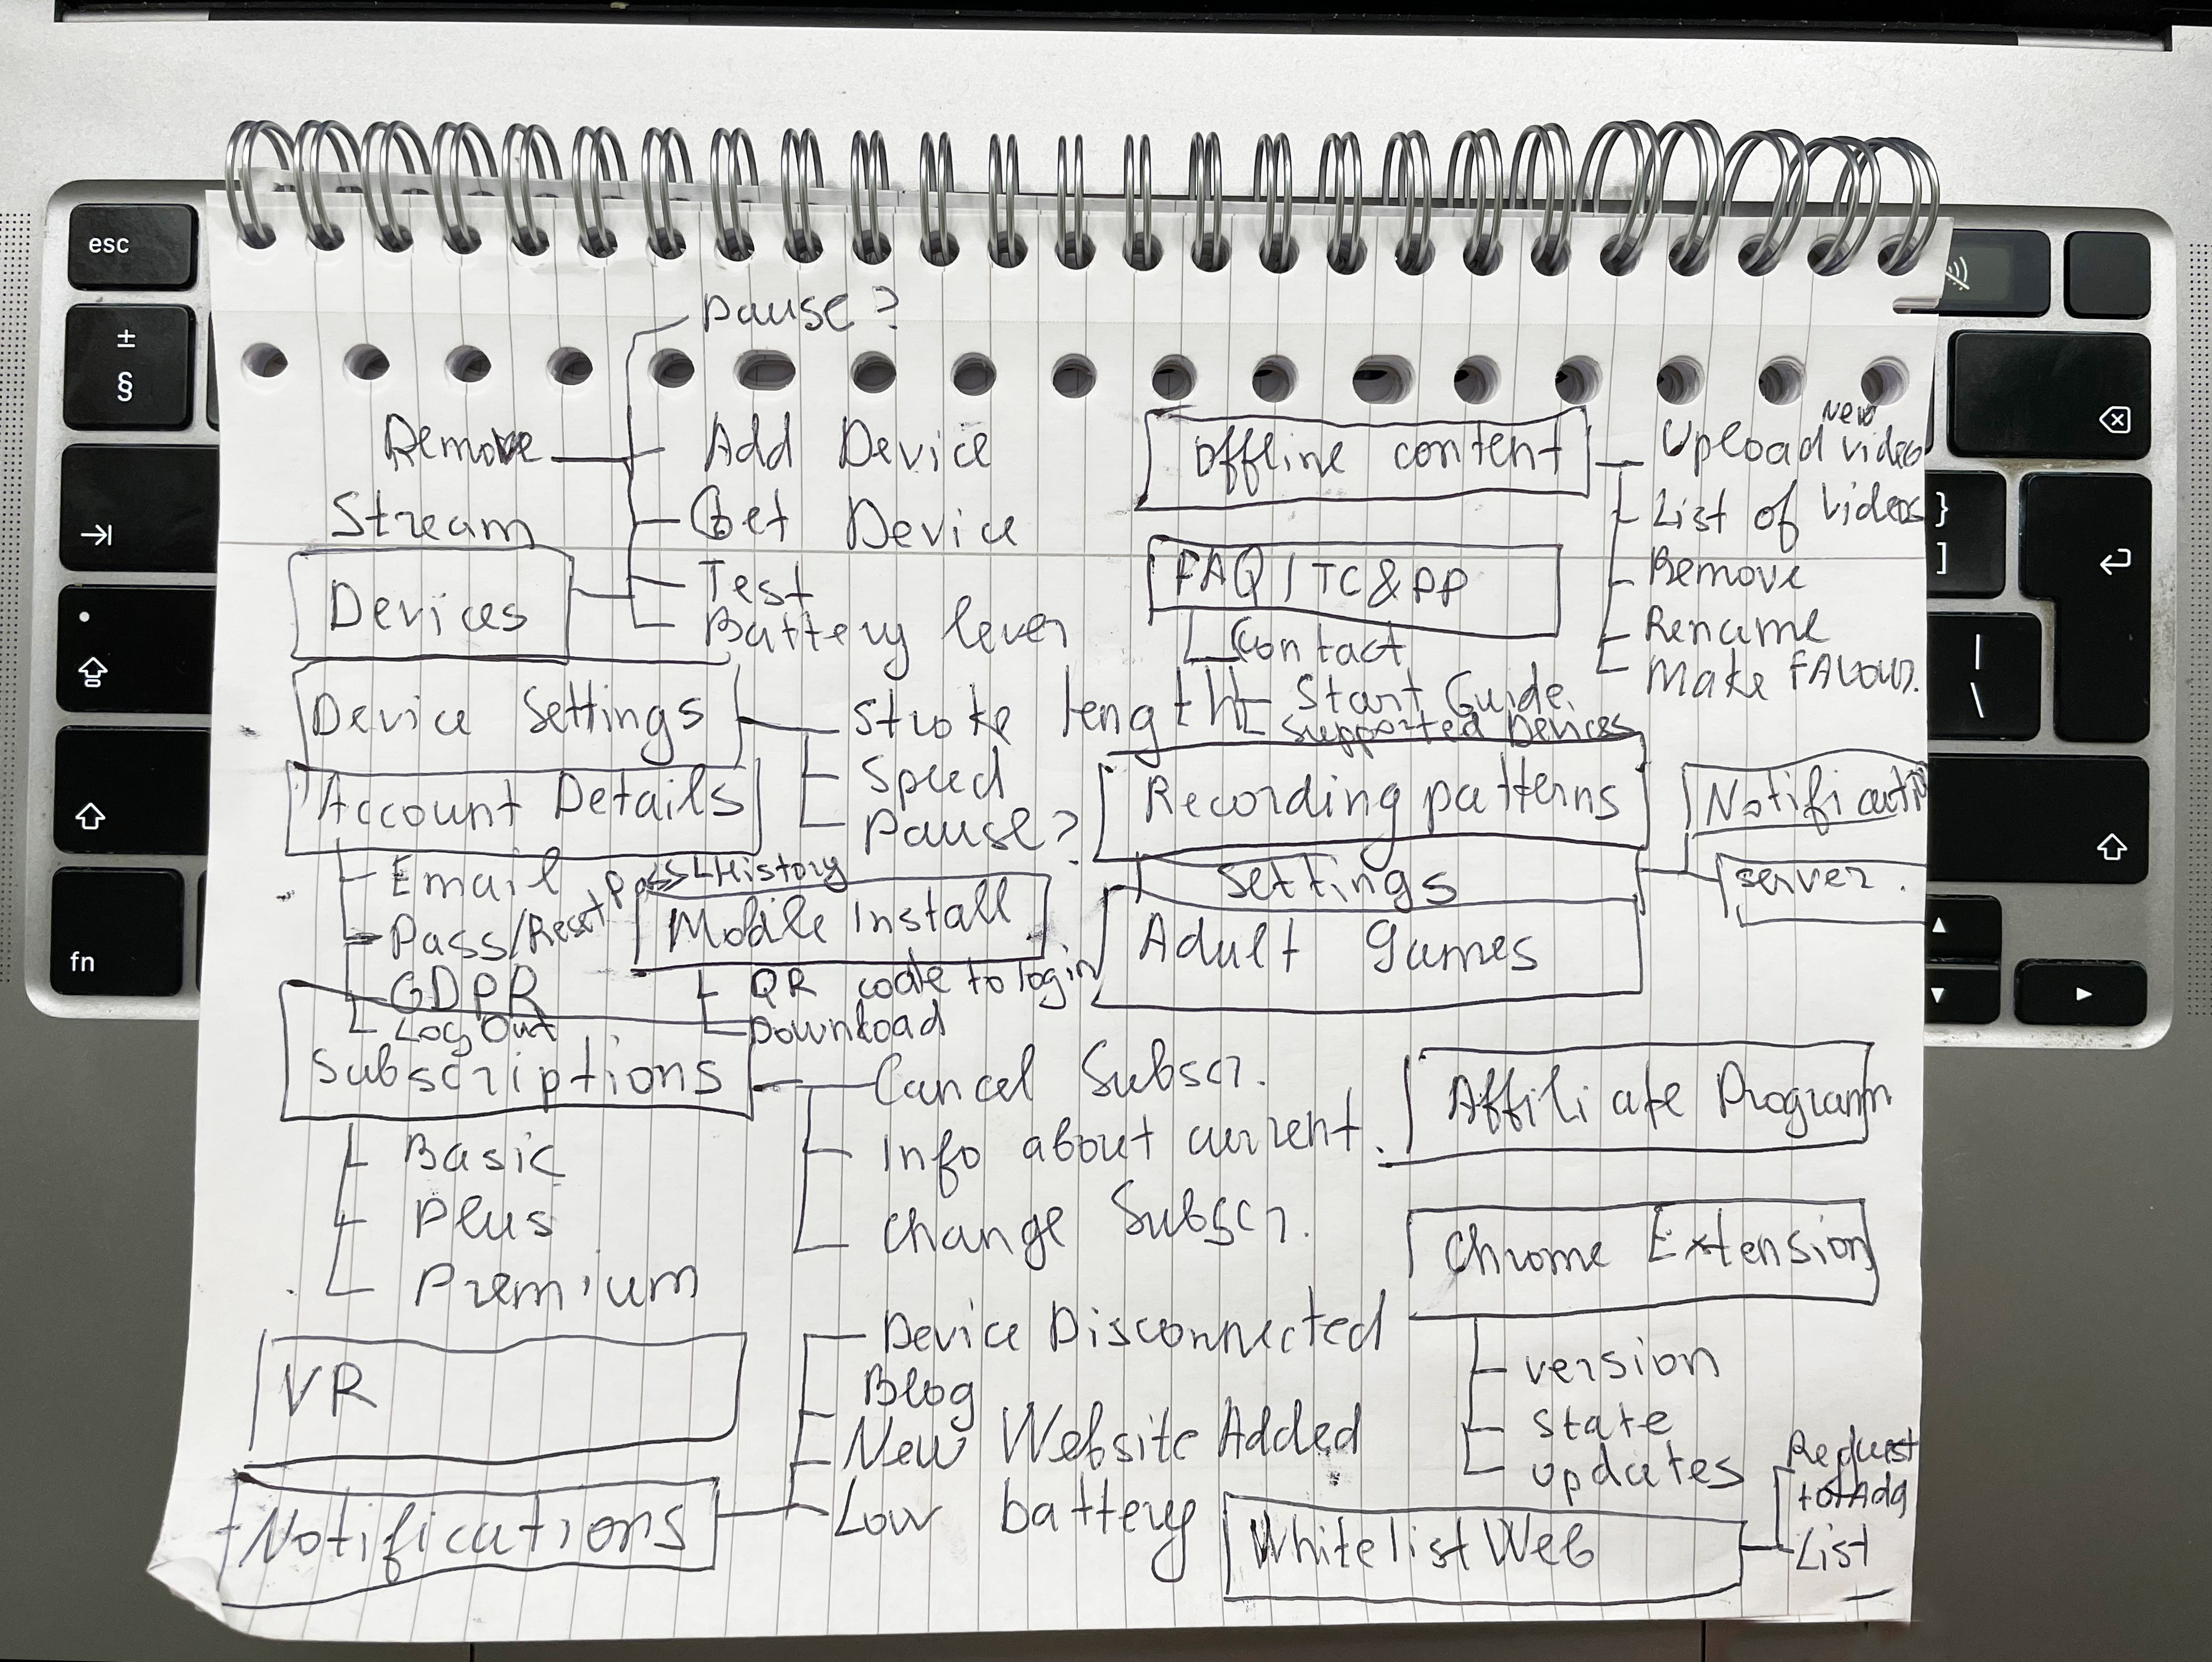 esc
±
§
fn
}
]
|
\
Pause?
Remove
Add Device
Stream
Get Device
Devices
Test
Battery level
Device Settings
Stroke length
Speed
Pause?
Account Details
Email
Pass/Reset Pass
History
GDPR
Log Out
Mobile Install
QR code to login
Download
Subscriptions
Cancel Subscr.
Info about current.
Change Subscr.
Basic
Plus
Premium
VR
Notifications
Device Disconnected
Blog
New Website Added
Low battery
Offline content
Upload new video
List of videos
Remove
Rename
Make FAvour.
FAQ / TC & PP
Contact
Start Guide.
Supported Devices
Recording patterns
Settings
server.
Adult Games
Affiliate Program
Chrome Extension
version
state
updates
Whitelist Web
Request
to Add
List